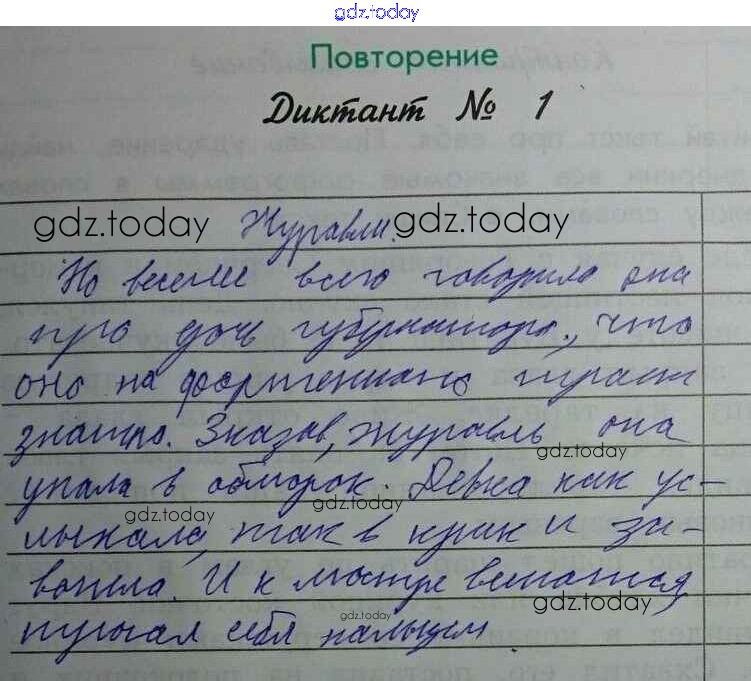 gdz.today
Повторение
Диктант № 1
gdz.today Журавли. gdz.today
Но веселее всего говорила она
про дочь губернатора, что
она на фортепиано играет
знатно. Сказав, журавль она
gdz.today
упала в обморок. Девка как ус-
gdz.today
лыхала, так в крик и за-
вопила. И к
gdz.today gdz.today
пугал себя пальцем